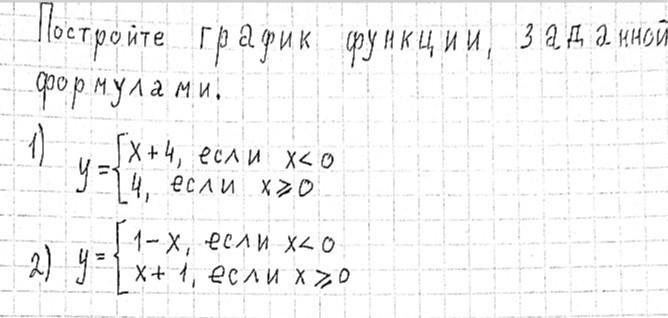 Постройте график функции, заданной
формулами.
1) y = { x + 4, если x < 0
4, если x ⩾ 0
2) y = { 1 - x, если x < 0
x + 1, если x ⩾ 0